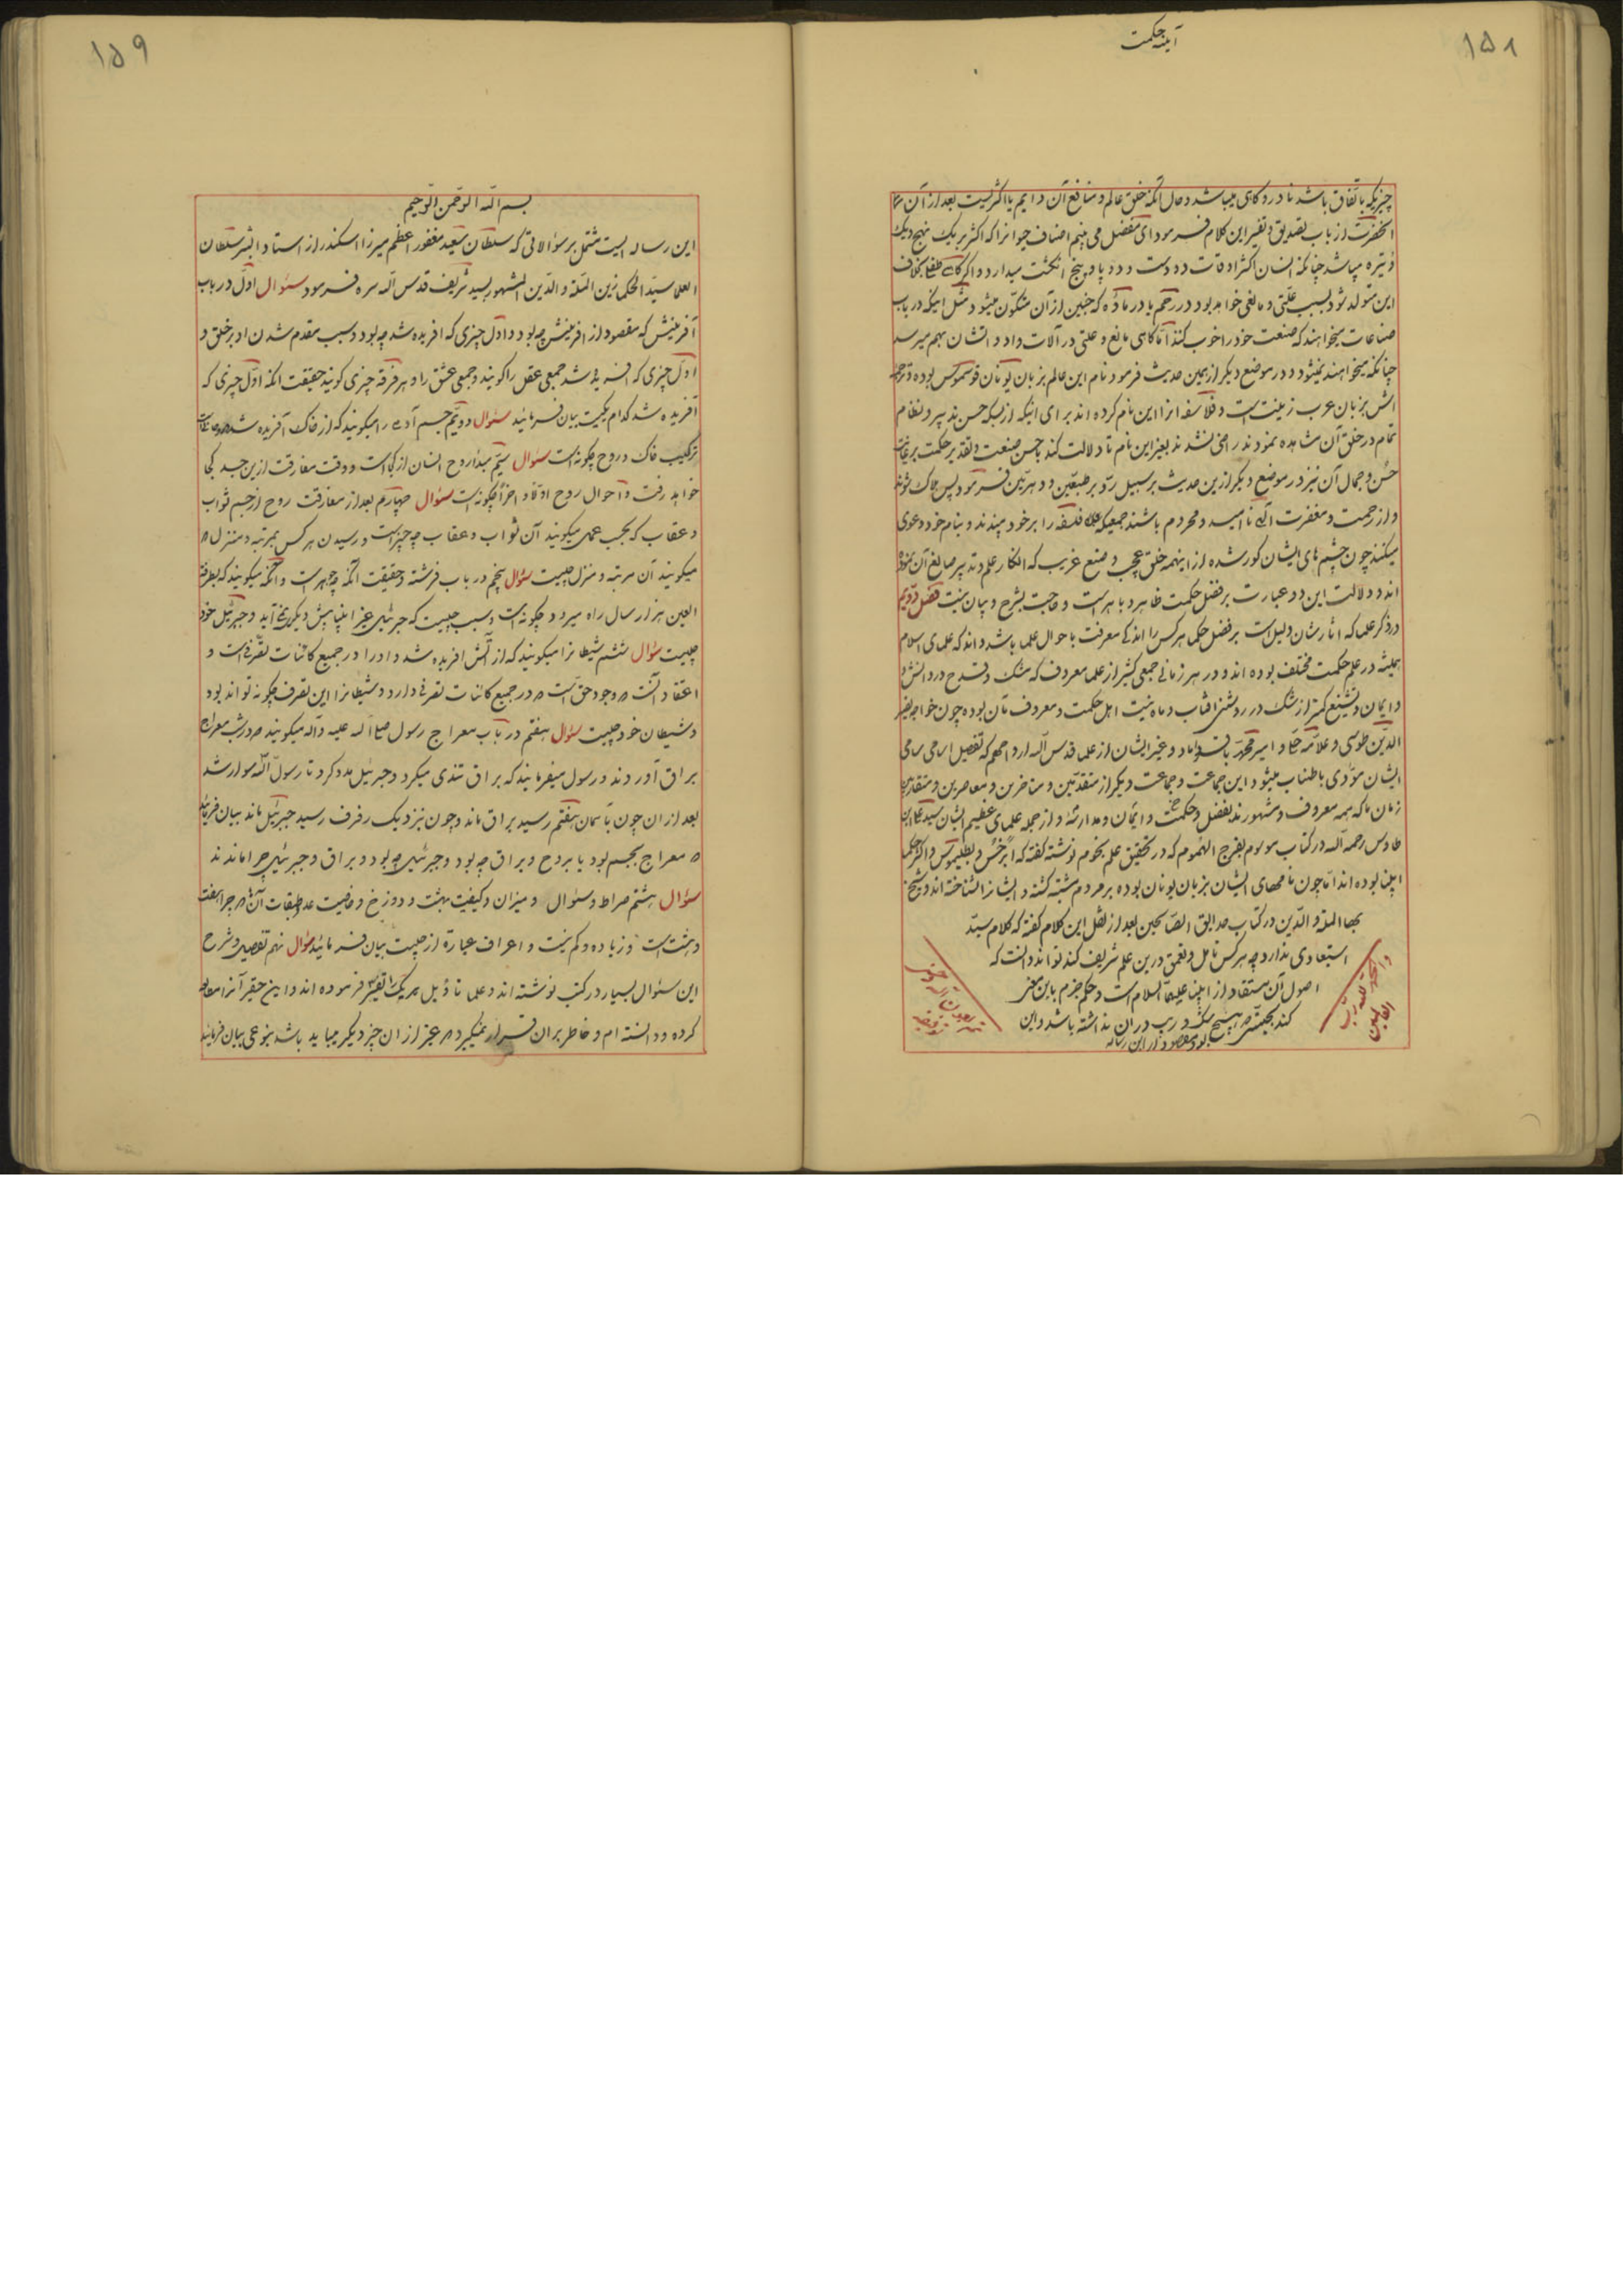 آینه حکمت
۱۵۸
چیزیکه باتفاق باشد نادر و کاهی میباشد و حال آنکه خلق عالم و منافع آن دایم یا اکثریست بعد از آن
انحضرت از باب تصدیق و تفسیر این کلام فرمود ای مفضل می بینم اصناف حیوانرا که اکثر بر یک نهج و یک
وتیره میباشد چنانکه انسان اکثر اوقات دو دست و دو پا و پنج انکشت میدارد و اگر کاهی بخلاف
این متولد شود بسبب علتی و مانعی خواهد بود در رحم یا در ماده که جنین از آن متکون میشود مثل اینکه در باب
صناعات میخواهند که صنعت خود را خوب کنند اما کاهی مانع و علتی در آلات و ادواتشان بهم میرسد
چنانکه میخواهند نمیشود و در موضع دیگر از همین حدیث فرمود نام این عالم بزبان یونان قوسموس بوده و ترجمه
اش بزبان عرب زینت است و فلاسفه انرا این نام کرده اند برای اینکه از بسکه حسن تدبیر و نظام
تمام در خلق آن مشاهده نمودند راضی نشدند بغیر این نام تا دلالت کند بحسن صنعت و تقدیر حکمت بر غایت
حسن و جمال آن نیز در موضع دیگر ازین حدیث بر سبیل رد بر طبیعیین و دهریین فرمود پس هلاک شوند
و از رحمت و مغفرت الهی ناامید و محروم باشند جمعیکه فلسفه را بر خود میبندند و بنام خود دعوی
میکنند چون چشم های ایشان کور شده از اینهمه خلق عجیب و صنع غریب که انکار علم و تدبیر صانع آن نموده
اند و دلالت این دو عبارت بر فضل حکمت ظاهر و باهر است و حاجت بشرح و بیان نیست فصل دویم
در ذکر علما که اثارشان دلیل است بر فضل حکما هر کس را اندکی معرفت باحوال علما باشد داند که علمای اسلام
همیشه در علم حکمت مختلف بوده اند و در هر زمانی جمعی کثیر از علما معروف که شک و قدح در دانش
و ایمان و تشیع کمتر از شک در روشنی افتاب و ماه نیست اهل حکمت و معروف بآن بوده چون خواجه نصیر
الدین طوسی و علامه حلی و امیر محمد باقر داماد و غیر ایشان از علما قدس الله ارواحهم که تفصیل اسامی سامی
ایشان مودی باطناب میشود این جماعت و جماعت دیگر از متقدمین و متاخرین و معاصرین و متقاربین
زمان ما که همه معروف و مشهورند بفضل و حکمت و ایمان و مدارند و از جمله علمای عظیم الشان سید علی ابن
طاوس رحمه الله در کتاب موسوم بفرج المهموم که در تحقیق علم نجوم نوشته گفته که ابرخس و بطلیموس و اکثر حکما
انبیا بوده اند اما چون نامهای ایشان بزبان یونان بوده بر مردم مشتبه کشته و ایشانرا نشناخته اند و شیخ
بهاء الملة و الدین در کتاب حدایق الصالحین بعد از نقل این کلام گفته که کلام سید
استبعادی ندارد چه هر کس تامل و تعمق درین علم شریف کند تواند دانست که
اصول آن مستفاد از انبیا علیهم السلام است و حکم جزم باین معنی
کند بحیثی که هیچ شک و ریب در آن نداشته باشد و این
بود مقصود از این رساله
والحمد لله رب
العالمین
۱۵۹
بسم الله الرحمن الرحیم
این رساله ایست مشتمل بر سؤالاتی که سلطان سعید مغفور اعظم میرزا اسکندر از استاد البشر سلطان
العلما سید الحکما زین الملة و الدین المشهور بسید شریف قدس الله سره فرمود سؤال اول در باب
آفرینش که مقصود از افرینش چه بود و اول چیزی که افریده شد چه بود و سبب مقدم شدن او بر خلق و
اول چیزی که افریده شد جمعی عقل را گویند و جمعی عشق را و هر فرقه چیزی گویند حقیقت انکه اول چیزی که
آفریده شد کدام یکیست بیان فرمائید سؤال دویم جسم آدم را میگویند که از خاک آفریده شد
ترکیب خاک و روح چکونه است سؤال سیم مبدا روح انسان از کجاست و وقت مفارقت ازین جسد کجا
خواهد رفت و احوال روح اولا و اخرا چکونه است سؤال چهارم بعد از مفارقت روح از جسم ثواب
و عقاب که بحسب عمل میگویند آن ثواب و عقاب چه چیز است و رسیدن هر کس بمرتبه و منزل که
میگویند آن مرتبه و منزل چیست سؤال پنجم در باب فرشته و حقیقت آنکه چه جوهر است و آنکه میگویند که بطرفة
العین هزار سال راه میرود چکونه است و سبب چیست که جبرئیل غیر انبیا پیش دیگری نمی آید و جبرئیل خود
چیست سؤال ششم شیطانرا میگویند که از آتش افریده شد و او را در جمیع کائنات تصرفی است و
اعتقاد آنست که وجود حق است که در جمیع کائنات تصرفی دارد و شیطانرا این تصرف چکونه تواند بود
و شیطان خود چیست سؤال هفتم در باب معراج رسول صلی الله علیه و آله میگویند که در شب معراج
براق آوردند و رسول میفرمایند که براق تندی میکرد و جبرئیل مدد کرد تا رسول الله سوار شد
بعد از ان چون باسمان هفتم رسید براق ماند و چون بنزدیک رفرف رسید جبرئیل ماند بیان فرمائید
که معراج بجسم بود یا بروح و براق چه بود و جبرئیل چه بود و براق و جبرئیل چرا ماندند
سؤال هشتم صراط و سؤال و میزان و کیفیت بهشت و دوزخ و خاصیت عدد طبقات آن که چرا هفت
و هشت است و زیاده و کم نیست و اعراف عبارة از چیست بیان فرمائید سؤال نهم تفصیل و شرح
این سئوال بسیار در کتب نوشته اند و علما تاویل هر یک را تفسیر فرموده اند و این حقیر آنرا مطالعه
کرده و دانسته ام و خاطر بر ان قرار نمیگیرد که غیر از ان چیز دیگر میباید باشد بنوعی بیان فرمایند